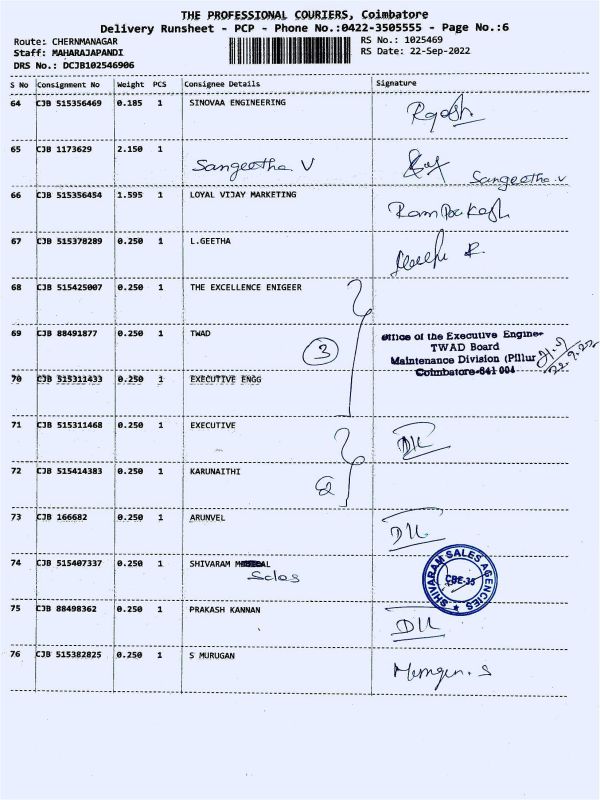 THE PROFESSIONAL COURIERS, Coimbatore
Delivery Runsheet - PCP - Phone No.:0422-3505555 - Page No.:6
Route: CHERNMANAGAR
RS No.: 1025469
Staff: MAHARAJAPANDI
RS Date: 22-Sep-2022
DRS No.: DCJB102546906
S No Consignment No Weight PCS Consignee Details Signature
64 CJB 515356469 0.185 1 SINOVAA ENGINEERING
65 CJB 1173629 2.150 1
Sangeetha V Sangeetha.V
66 CJB 515356454 1.595 1 LOYAL VIJAY MARKETING
Ram Prakash
67 CJB 515378289 0.250 1 L.GEETHA
68 CJB 515425007 0.250 1 THE EXCELLENCE ENIGEER
69 CJB 88491877 0.250 1 TWAD
3
Office of the Executive Engineer
TWAD Board
Maintenance Division (Pillur
Coimbatore-641 004
22.9.22
70 CJB 515311433 0.250 1 EXECUTIVE ENGG
71 CJB 515311468 0.250 1 EXECUTIVE
72 CJB 515414383 0.250 1 KARUNAITHI
73 CJB 166682 0.250 1 ARUNVEL
74 CJB 515407337 0.250 1 SHIVARAM
Sales
SHIVARAM SALES AGENCIES
CBE-35
75 CJB 88498362 0.250 1 PRAKASH KANNAN
76 CJB 515382825 0.250 1 S MURUGAN